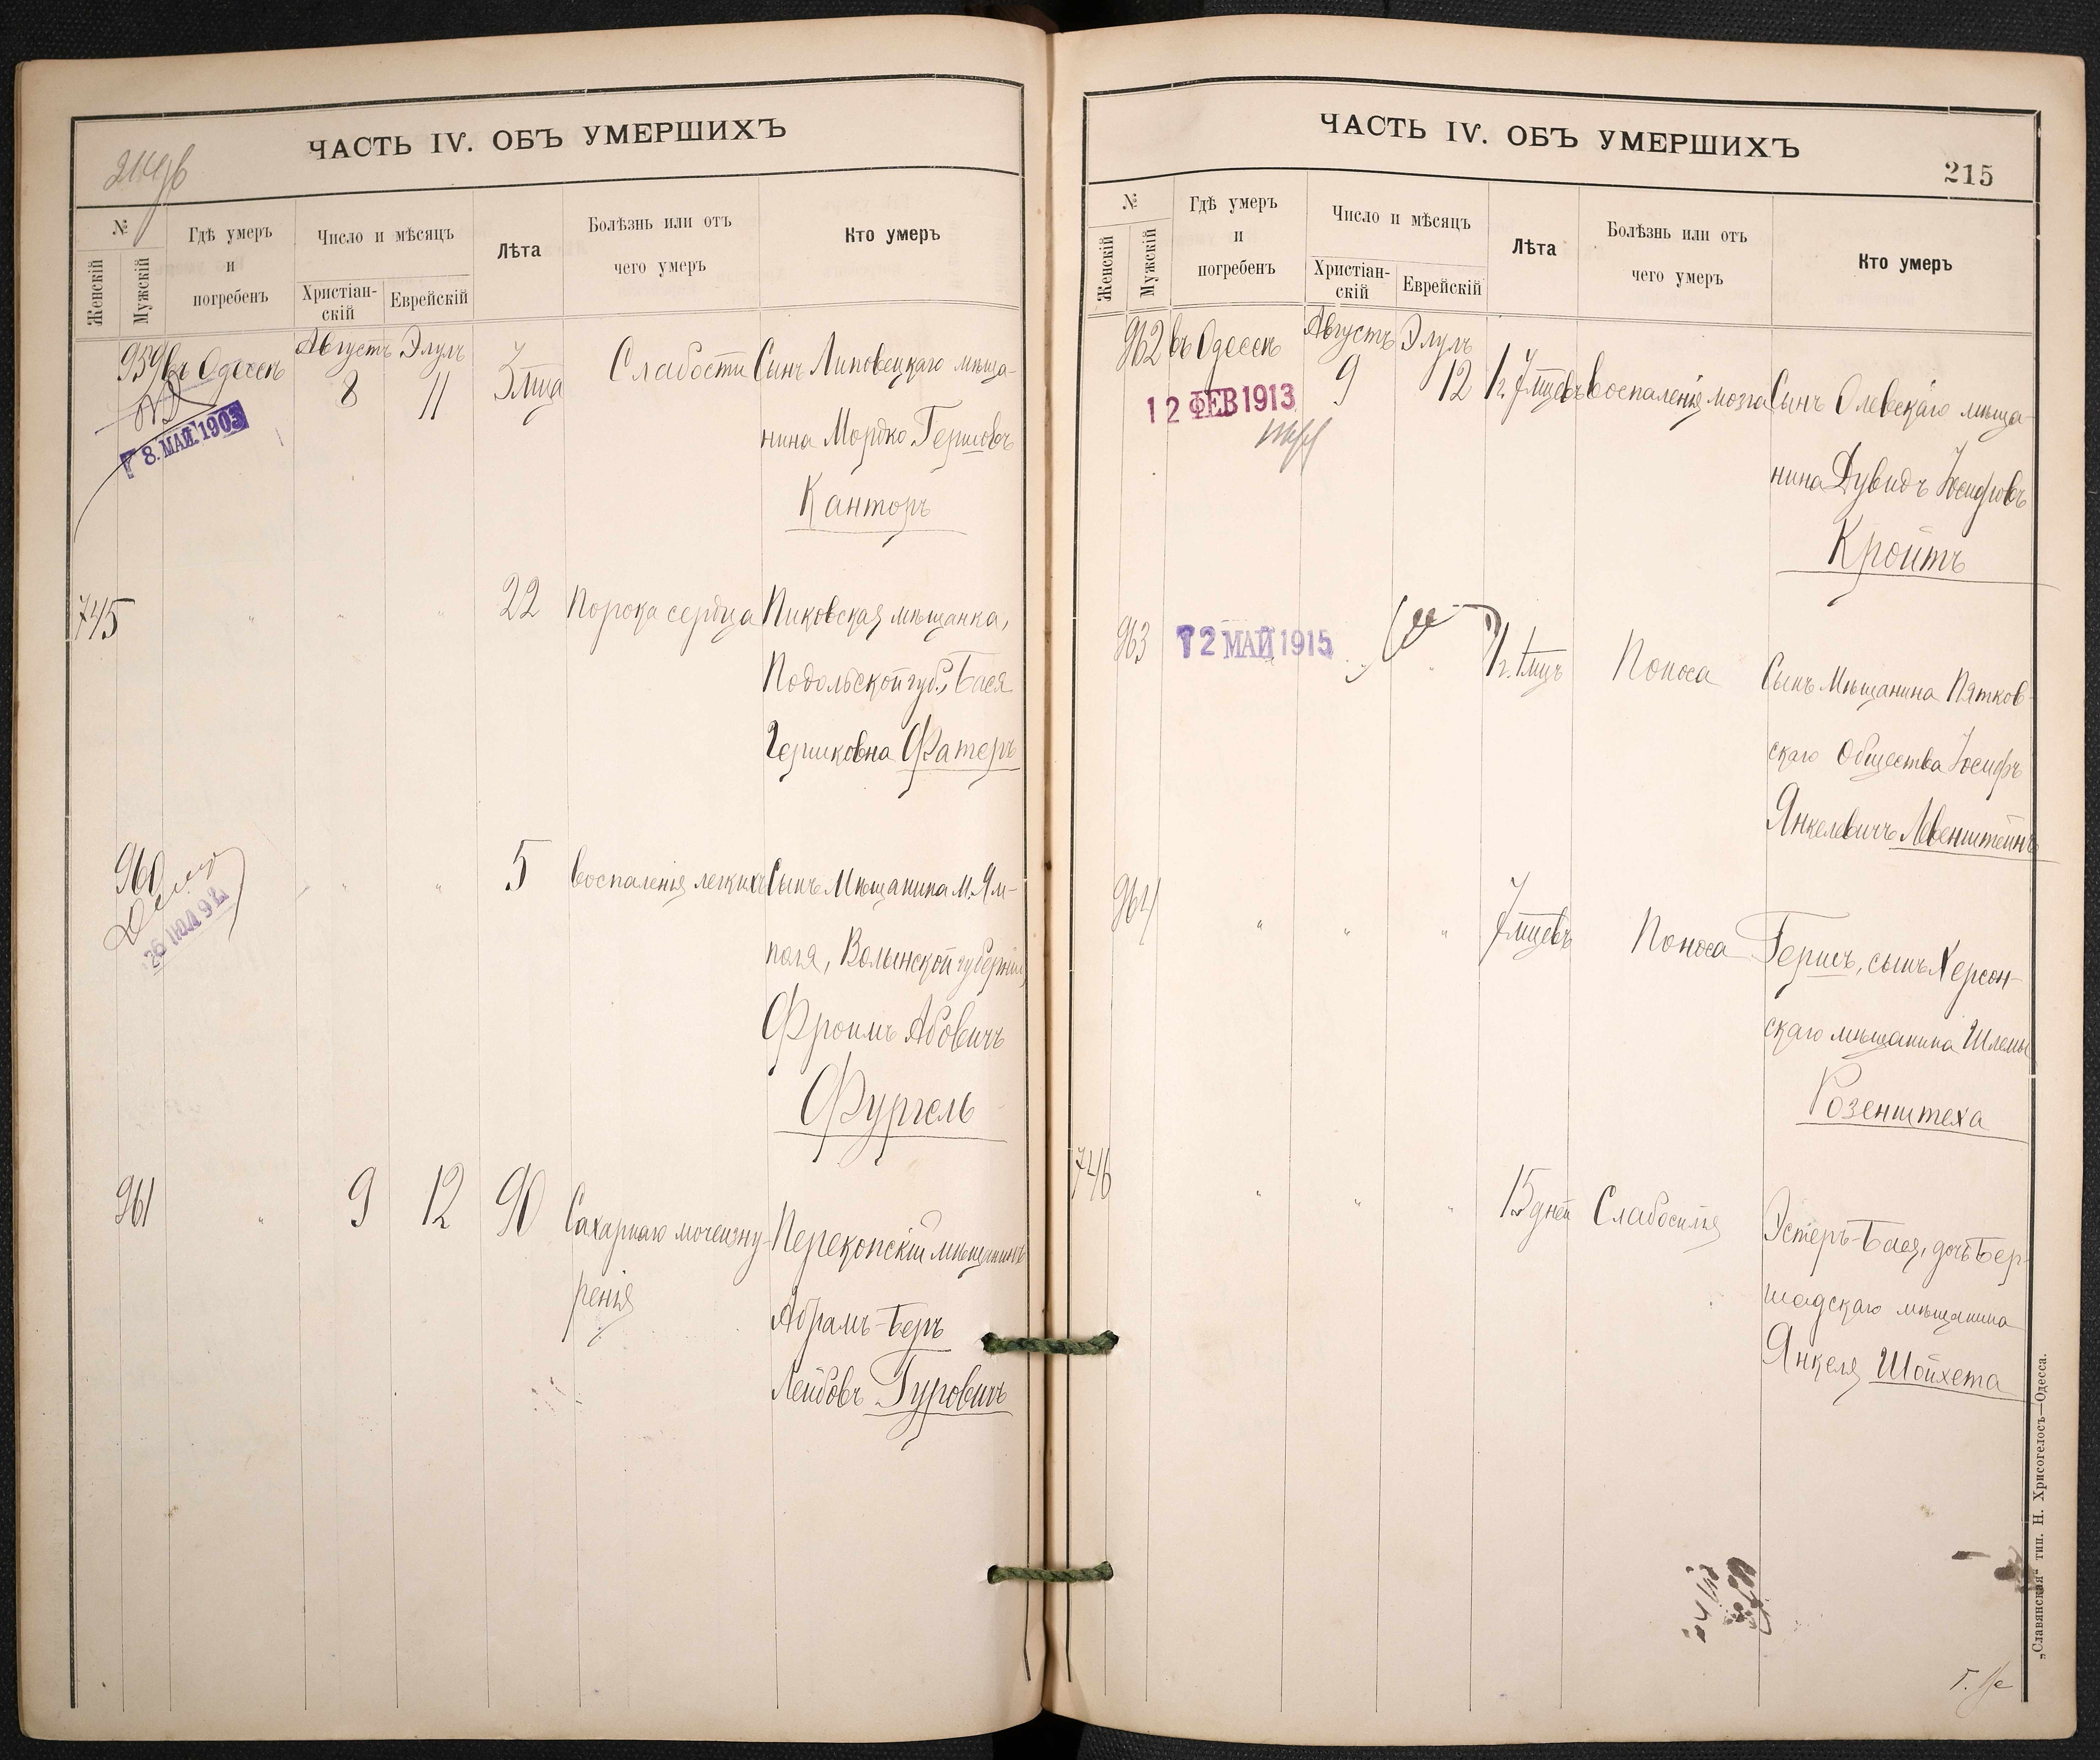 ЧАСТЬ IV. ОБЪ УМЕРШИХЪ
№
Женскій
Мужскій
Гдѣ умеръ
и
погребенъ
Число и мѣсяцъ
Христіан-
скій
Еврейскій
Лѣта
Болѣзнь или отъ
чего умеръ
Кто умеръ
959 въ Одессѣ Августъ Элулъ
8 11 3 м-ца Слабости Сынъ Липовецкаго мѣща-
8. МАЙ 1903
нина Мордко Гершовъ
Канторъ
745 " " " 22 Порока сердца Пиковская мѣщанка,
Подольской губ., Бася
Гершковна Фатеръ
960 " " " 5 Воспаленія легкихъ Сынъ Мѣщанина м. Ям-
поля, Волынской губерніи,
Фроимъ Абовичъ
Фургель
961 " 9 12 90 Сахарнаго мочеизну-
ренія
Перекопскій мѣщанинъ
Абрамъ-Беръ
Лейбовъ Гуровичъ
ЧАСТЬ IV. ОБЪ УМЕРШИХЪ
215
№
Женскій
Мужскій
Гдѣ умеръ
и
погребенъ
Число и мѣсяцъ
Христіан-
скій
Еврейскій
Лѣта
Болѣзнь или отъ
чего умеръ
Кто умеръ
962 въ Одессѣ Августъ Элулъ
9 12 1 г. 7 м-цевъ Воспаленія мозга Сынъ Олевскаго мѣща-
12 ФЕВ 1913
нина Дувидъ Іосифовъ
Кройтъ
963 12 МАЙ 1915 " " 1 г. 1 м-цъ Поноса Сынъ Мѣщанина Пятков-
скаго Общества Іосифъ
Янкелевичъ Левенштейнъ
964 " " " 7 м-цевъ Поноса Гершъ, сынъ Херсон-
скаго мѣщанина Шлемы
Розенштеха
746 " " " 15 дней Слабосилія Эстеръ-Бася, дочь Бер-
шадскаго мѣщанина
Янкеля Шойхета
„Славянская“ тип. Н. Хрисогелосъ—Одесса.